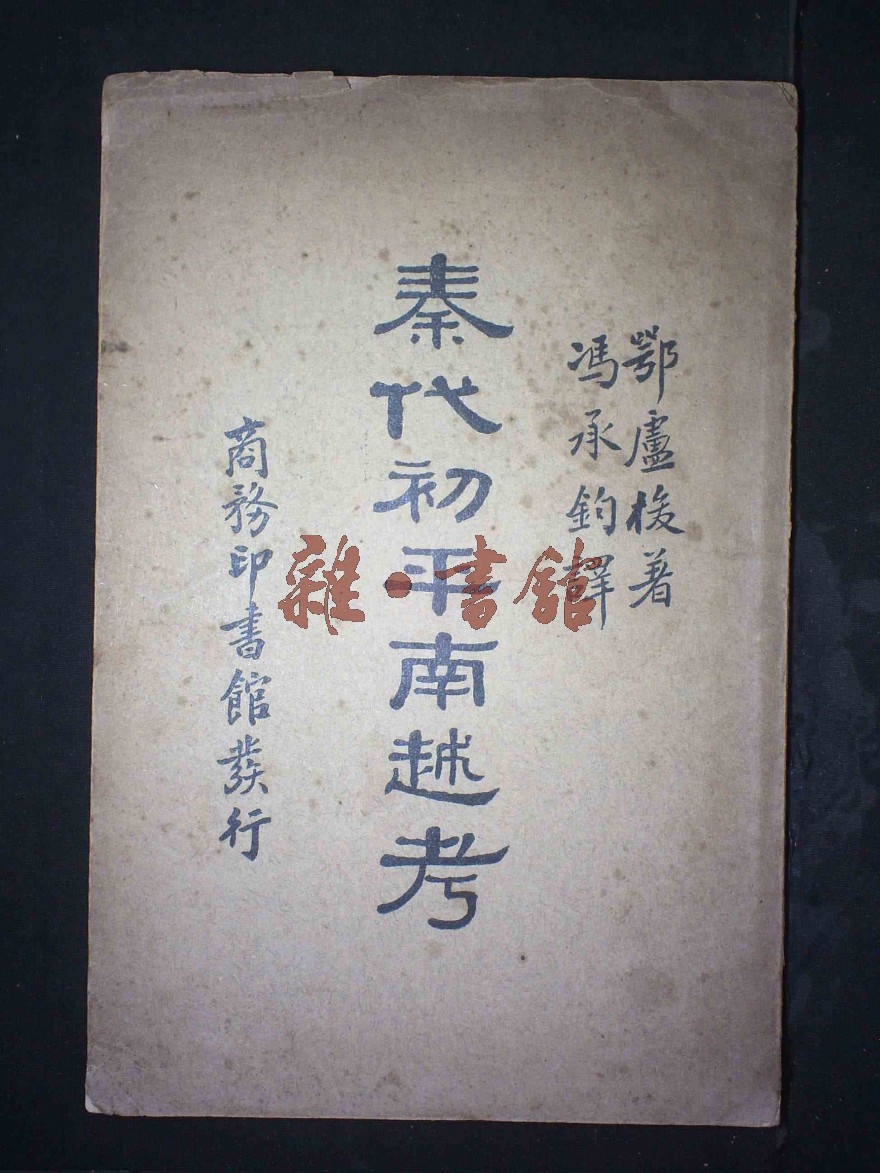 鄂盧梭著
馮承鈞譯
秦代初平南越考
商務印書館發行
雜·書館